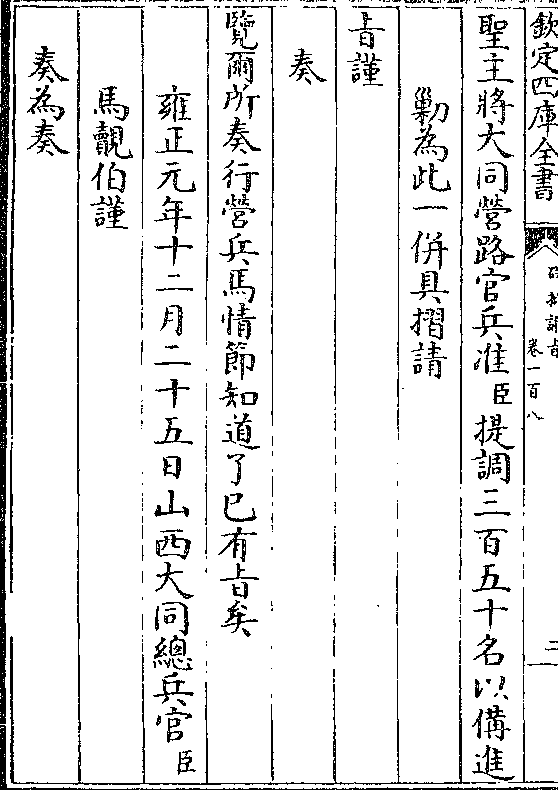 欽定四庫全書
硃批諭旨
卷一百八
二
聖主將大同營路官兵准臣提調三百五十名以備進
勦為此一併具摺請
旨謹
奏
覽爾所奏行營兵馬情節知道了已有旨矣
雍正元年十二月二十五日山西大同總兵官臣
馬覿伯謹
奏為奏